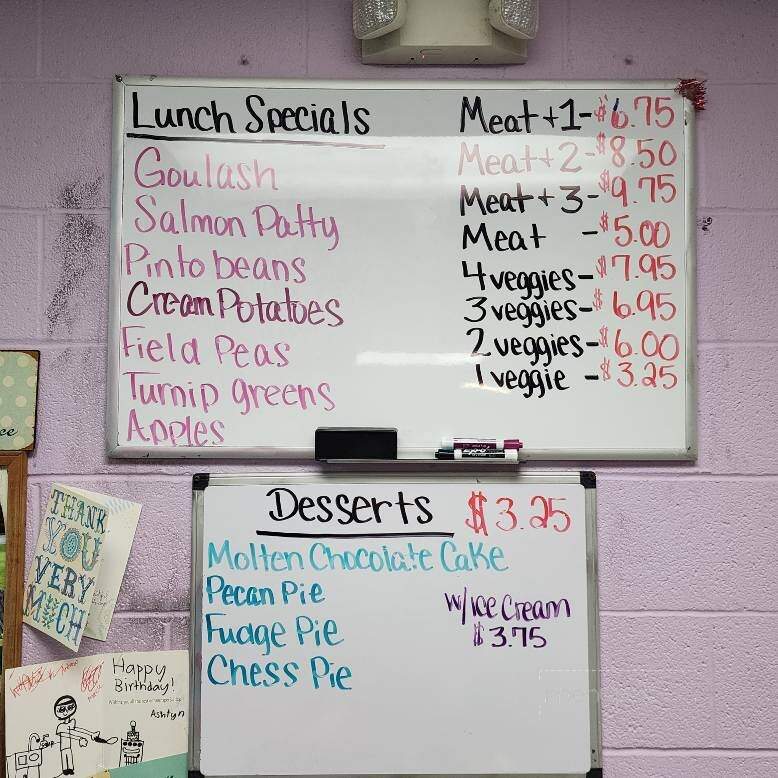 Lunch Specials
Goulash
Salmon Patty
Pinto beans
Cream Potatoes
Field Peas
Turnip greens
Apples
Meat + 1 - $6.75
Meat + 2 - $8.50
Meat + 3 - $9.75
Meat - $5.00
4 veggies - $7.95
3 veggies - $6.95
2 veggies - $6.00
1 veggie - $3.25
EXPO
Desserts $3.25
Molten Chocolate Cake
Pecan Pie
Fudge Pie
Chess Pie
w/ice cream
$3.75
THANK
YOU
VERY
MUCH
Happy
Birthday!
Ashtyn